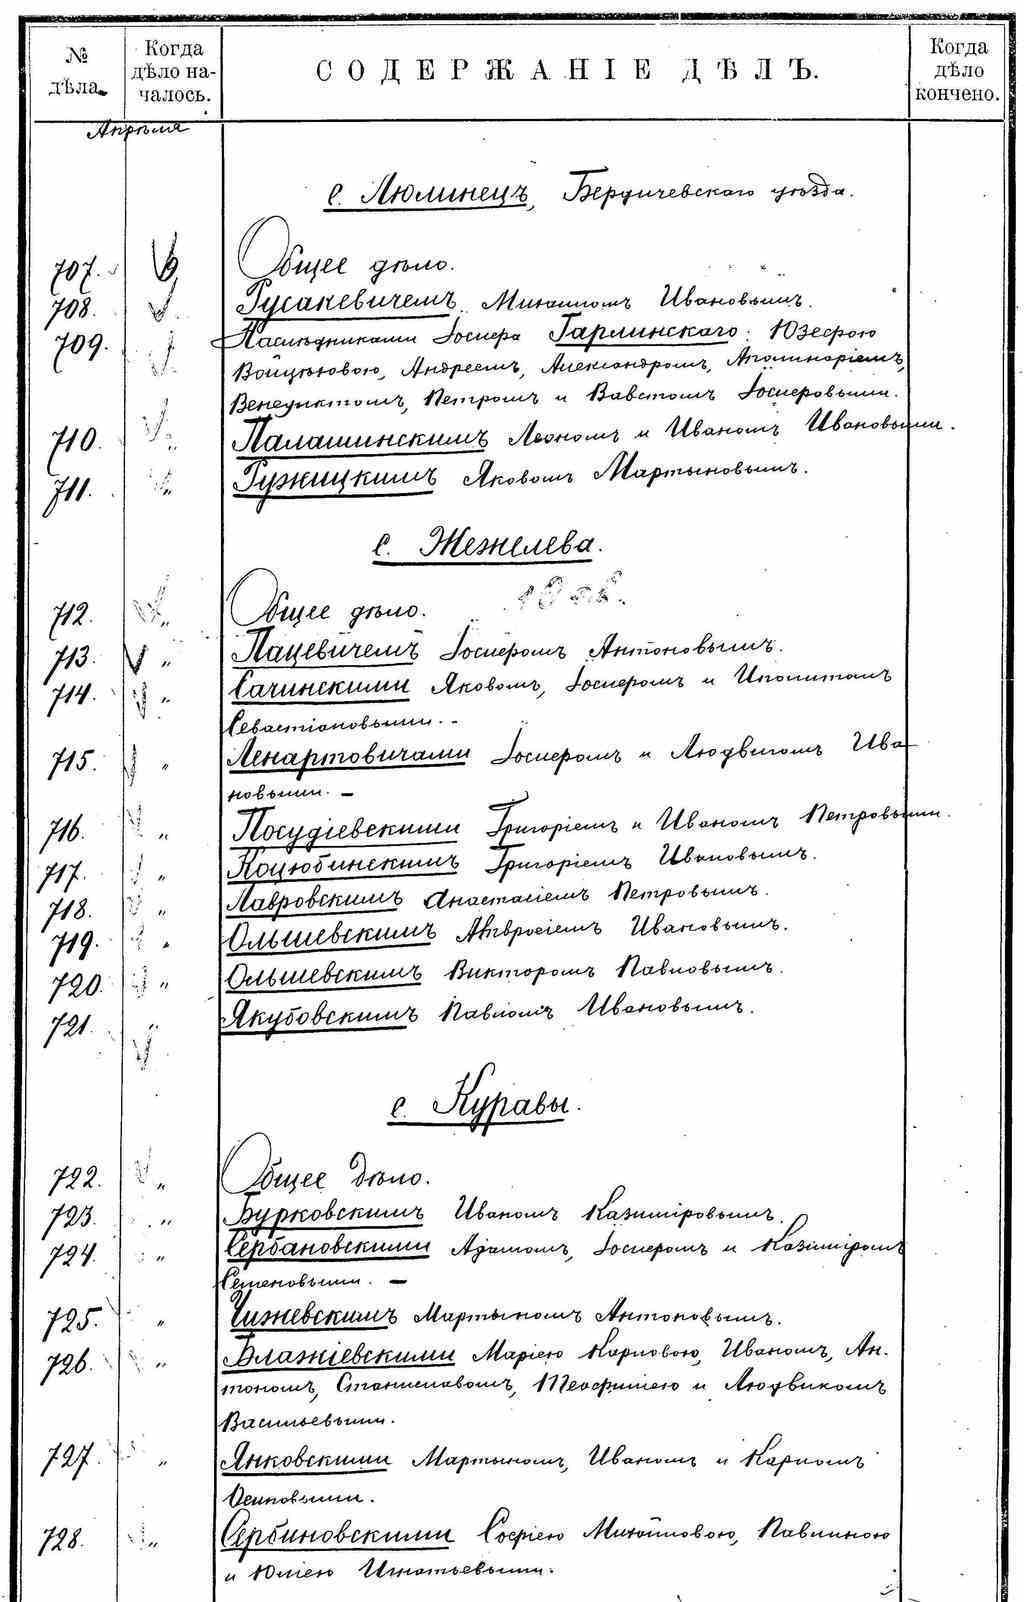 № дѣла.
Когда дѣло на-чалось.
СОДЕРЖАНІЕ ДѢЛЪ.
Когда дѣло кончено.
Апрѣля
с. Люлинецъ, Бердичевскаго уѣзда.
707. 9 Общее дѣло.
708. " Русакевичемъ Михаиломъ Ивановымъ.
709. " Наслѣдниками Іосифа Гарлинскаго: Юзефою
Войцѣховою, Андреемъ, Александромъ, Аполинаріемъ,
Венедиктомъ, Петромъ и Іосифовыми.
710. " Палашинскимъ Леономъ и Иваномъ Ивановыми.
711. " Ружицкимъ Яковомъ Мартыновымъ.
с. Жежелева.
712. " Общее дѣло.
713. " Пацевичемъ Іосифомъ Антоновымъ.
714. " Сачинскими Яковомъ, Іосифомъ и Иполитомъ
Севастіановыми.
715. " Ленартовичами Іосифомъ и Людвигомъ Ива
новыми. —
716. " Посудіевскими Григоріемъ и Иваномъ Петровыми.
717. " Коцюбинскимъ Григоріемъ Ивановымъ.
718. " Лавровскимъ Анастасіемъ Петровымъ.
719. " Ольшевскимъ Амвросіемъ Ивановымъ.
720. " Ольшевскимъ Викторомъ Павловымъ.
721. " Якубовскимъ Павломъ Ивановымъ.
с. Куравы.
722. " Общее дѣло.
723. " Бурковскимъ Иваномъ Казиміровымъ.
724. " Сербановскими Адамомъ, Іосифомъ и Казиміромъ
Семеновыми. —
725. " Чижевскимъ Мартыномъ Антоновымъ.
726. " Блажіевскими Маріею Карповою, Иваномъ, Ан-
тономъ, Станиславомъ, Теофиліею и Людвикомъ
Васильевыми.
727. " Янковскими Мартыномъ, Иваномъ и Карпомъ
Осиповыми.
728. " Сербиновскими Софіею Михайловою, Павлиною
и Юліею Игнатьевыми.